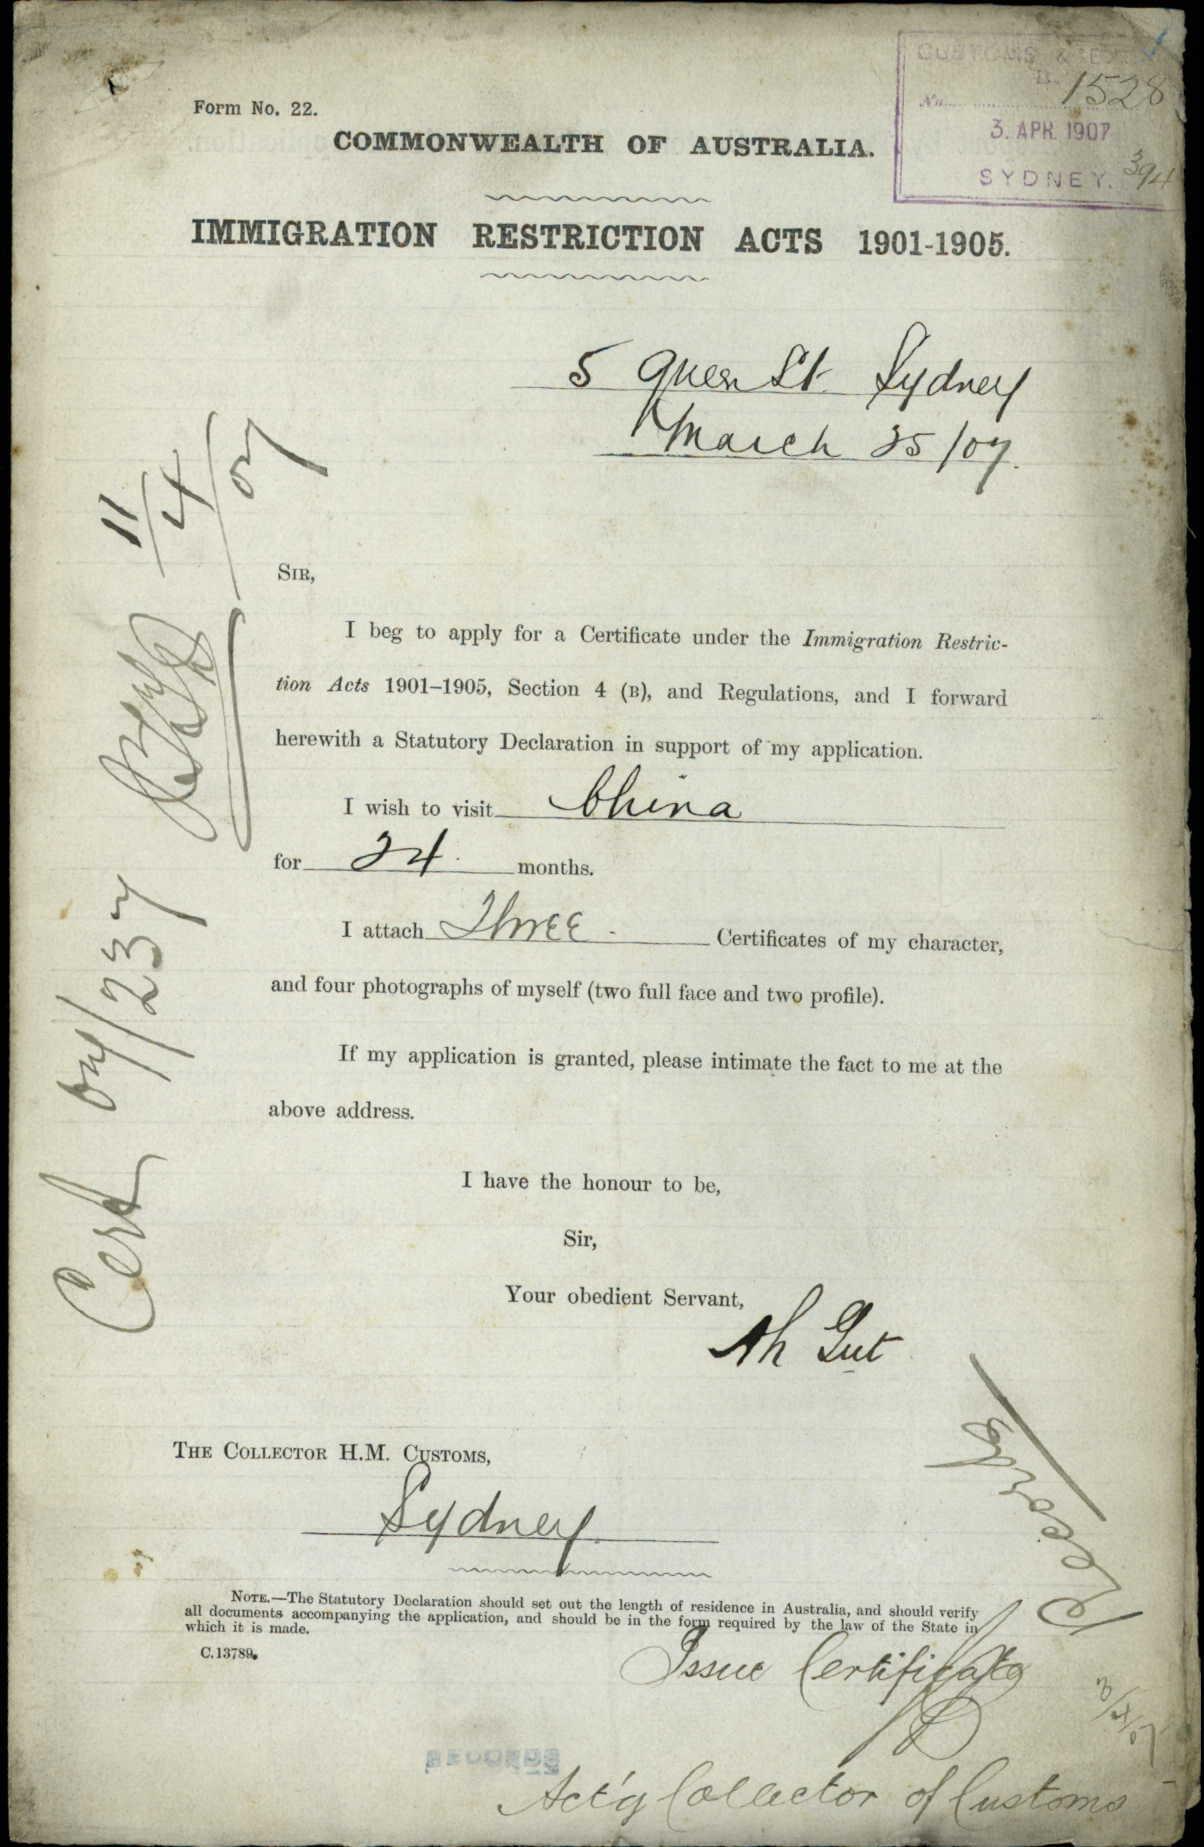 CUSTOMS & EX
B.
No. 1528
3. APR. 1907
SYDNEY. 394
Form No. 22.
COMMONWEALTH OF AUSTRALIA.
IMMIGRATION RESTRICTION ACTS 1901-1905.
5 Queen St. Sydney
March 25/07.
SIR,
I beg to apply for a Certificate under the Immigration Restric-
tion Acts 1901–1905, Section 4 (B), and Regulations, and I forward
herewith a Statutory Declaration in support of my application.
I wish to visit China
for 24. months.
I attach Three. Certificates of my character,
and four photographs of myself (two full face and two profile).
If my application is granted, please intimate the fact to me at the
above address.
I have the honour to be,
Sir,
Your obedient Servant,
Ah Gut
THE COLLECTOR H.M. CUSTOMS,
Sydney.
NOTE.—The Statutory Declaration should set out the length of residence in Australia, and should verify
all documents accompanying the application, and should be in the form required by the law of the State in
which it is made.
C.13789.
Issue Certificate
Act'g Collector of Customs
RECORDS
Records
3/4/07
Cert 07/237
11/4/07